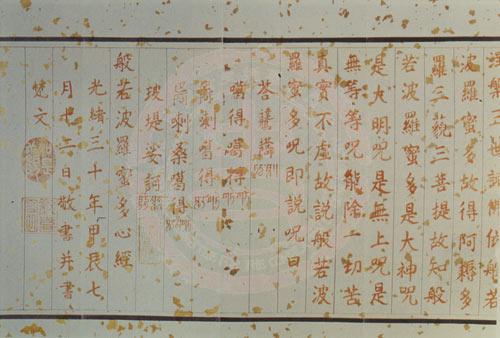 三世諸佛依般若
波羅蜜多故得阿耨多
羅三藐三菩提故知般
若波羅蜜多是大神咒
是大明咒是無上咒是
無等等咒能除一切苦
真實不虛故說般若波
羅蜜多咒即說咒曰
噶得噶得
噶得
喇桑噶得
娑訶
般若波羅蜜多心經
光緒三十年甲辰七
月十日敬書并書
梵文